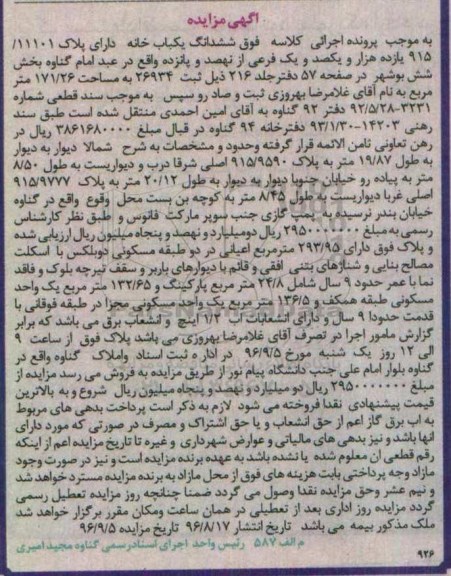 آگهی مزایده
به موجب پرونده اجرائی کلاسه فوق ششدانگ یکباب خانه دارای پلاک ۱۱۱۰۱/
۹۱۵ یازده هزار و یکصد و یک فرعی از نهصد و پانزده واقع در عبد امام گناوه بخش
شش بوشهر در صفحه ۵۷ دفترجلد ۲۱۶ ذیل ثبت ۲۶۹۳۴ به مساحت ۱۷۱/۲۶ متر
مربع به نام آقای غلامرضا بهروزی ثبت و صادر و سپس به موجب سند قطعی شماره
۳۲۳۱-۹۲/۵/۲۸ دفتر ۹۲ گناوه به آقای امین احمدی منتقل شده است طبق سند
رهنی ۱۴۲۰۳-۹۳/۱/۳۰ دفترخانه ۹۴ گناوه در قبال مبلغ ۳۸۶۱۶۸۰۰۰۰ ریال در
رهن تعاونی ثامن الائمه قرار گرفته وحدود و مشخصات به شرح شمالا دیوار به دیوار
به طول ۱۹/۸۷ متر به پلاک ۹۱۵/۹۵۹۰ اصلی شرقا درب و دیواریست به طول ۸/۵۰
متر به پیاده رو خیابان جنوبا دیوار به دیوار به طول ۲۰/۱۲ متر به پلاک ۹۱۵/۹۷۷۷
اصلی غربا دیواریست به طول ۸/۴۵ متر به کوچه بن بست محل وقوع واقع در گناوه
خیابان بندر نرسیده به پمپ گازی جنب سوپر مارکت فانوس و طبق نظر کارشناس
رسمی به مبلغ ۲۹۵۰۰۰۰۰۰۰ ریال دومیلیارد و نهصد و پنجاه میلیون ریال ارزیابی شده
و پلاک فوق دارای ۲۹۳/۹۵ مترمربع اعیانی در دو طبقه مسکونی دوبلکس با اسکلت
مصالح بنایی و شناژهای بتنی افقی و قائم با دیوارهای باربر و سقف تیرچه بلوک و فاقد
نما با عمر حدود ۹ سال شامل ۲۴/۸ متر مربع پارکینگ و ۱۳۲/۶۵ متر مربع یک واحد
مسکونی طبقه همکف و ۱۳۶/۵ متر مربع یک واحد مسکونی مجزا در طبقه فوقانی با
قدمت حدودا ۹ سال و دارای انشعابات آب ۱/۲ اینچ و انشعاب برق می باشد که برابر
گزارش مامور اجرا در تصرف آقای غلامرضا بهروزی می باشد پلاک فوق از ساعت ۹
الی ۱۲ روز یک شنبه مورخ ۹۶/۹/۵ در اداره ثبت اسناد واملاک گناوه واقع در
گناوه بلوار امام علی جنب دانشگاه پیام نور از طریق مزایده به فروش می رسد مزایده از
مبلغ ۲۹۵۰۰۰۰۰۰۰ ریال دو میلیارد و نهصد و پنجاه میلیون ریال شروع و به بالاترین
قیمت پیشنهادی نقدا فروخته می شود لازم به ذکر است پرداخت بدهی های مربوط
به اب برق گاز اعم از حق انشعاب و یا حق اشتراک و مصرف در صورتی که مورد دارای
آنها باشد و نیز بدهی های مالیاتی و عوارض شهرداری و غیره تا تاریخ مزایده اعم از اینکه
رقم قطعی ان معلوم شده یا نشده باشد به عهده برنده مزایده است و نیز در صورت وجود
مازاد وجه پرداختی بابت هزینه های فوق از محل مازاد به برنده مزایده مسترد خواهد شد
و نیم عشر وحق مزایده نقدا وصول می گردد ضمنا چنانچه روز مزایده تعطیل رسمی
گردد مزایده روز اداری بعد از تعطیلی در همان ساعت ومکان مقرر برگزار خواهد شد
ملک مذکور بیمه می باشد تاریخ انتشار ۹۶/۸/۱۷ تاریخ مزایده ۹۶/۹/۵
م الف ۵۸۷ رئیس واحد اجرای اسناد رسمی گناوه مجید امیری
۹۲۶